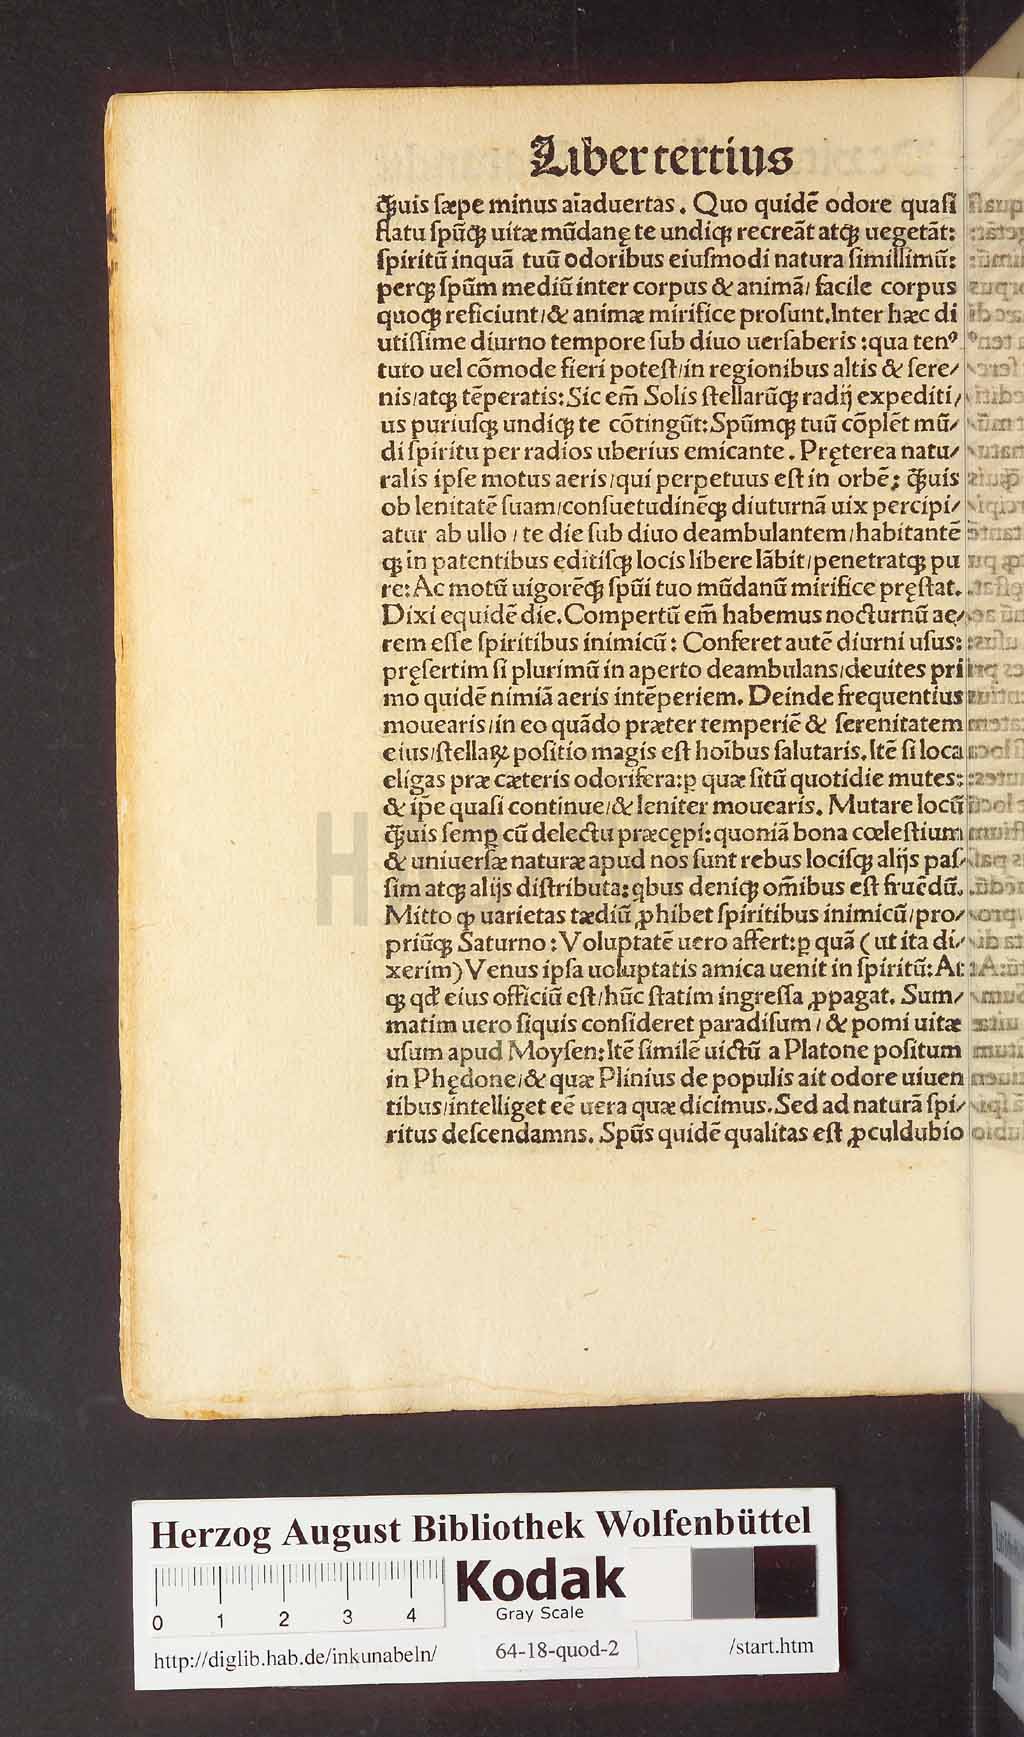 Liber tertius
q̄uis sæpe minus aīaduertas. Quo quidē odore quasi
flatu spūq; uitæ mūdanę te undiq; recreāt atq; uegetāt:
spiritū inquā tuū odoribus eiusmodi natura simillimū:
perq; spūm mediū inter corpus & animā/ facile corpus
quoq; reficiunt/& animæ mirifice prosunt.Inter hæc di
utissime diurno tempore sub diuo uersaberis:qua tenꝰ
tuto uel cōmode fieri potest/in regionibus altis & sere/
nis/atq; tēperatis:Sic em̄ Solis stellarūq; radij expediti/
us puriusq; undiq; te cōtingūt:Spūmq; tuū cōplēt mū/
di spiritu per radios uberius emicante. Pręterea natu/
ralis ipse motus aeris/qui perpetuus est in orbē; q̄uis
ob lenitatē suam/consuetudinēq; diuturnā uix percipi/
atur ab ullo/te die sub diuo deambulantem/habitantē
q; in patentibus editisq; locis libere lābit/penetratq; pu
re:Ac motū uigorēq; spūi tuo mūdanū mirifice pręstat.
Dixi equidē die.Compertū em̄ habemus nocturnū ae/
rem esse spiritibus inimicū: Conferet autē diurni usus:
pręsertim si plurimū in aperto deambulans/deuites pri
mo quidē nimiā aeris intēperiem. Deinde frequentius
mouearis/in eo quādo præter temperiē & serenitatem
eius/stellaꝝ positio magis est hoībus salutaris.Itē si loca
eligas præ cæteris odorifera:ꝑ quæ sitū quotidie mutes:
& ip̄e quasi continue/& leniter mouearis. Mutare locū
q̄uis semꝑ cū delectu præcępi:quoniā bona cœlestium
& uniuersæ naturæ apud nos sunt rebus locisq; alijs pas/
sim atq; alijs distributa:qbus deniq; om̄ibus est fruēdū.
Mitto ꝙ uarietas tædiū ꝓhibet spiritibus inimicū/pro/
priūq; Saturno:Voluptatē uero affert:ꝑ quā (ut ita di/
xerim) Venus ipsa uoluptatis amica uenit in spiritū:At
q; qd̄ eius officiū est/hūc statim ingressa ꝓpagat. Sum/
matim uero siquis consideret paradisum/& pomi uitæ
usum apud Moysen:Itē similē uictū a Platone positum
in Phędone/& quæ Plinius de populis ait odore uiuen
tibus/intelliget eē uera quæ dicimus.Sed ad naturā spi/
ritus descendamns. Spūs quidē qualitas est ꝓculdubio
Herzog August Bibliothek Wolfenbüttel
Kodak
Gray Scale
0 1 2 3 4
http://diglib.hab.de/inkunabeln/ 64-18-quod-2 /start.htm